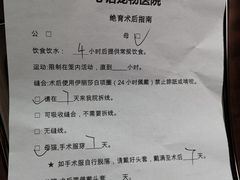 宠物医院
绝育术后指南
公□ 母☑
饮食饮水: 4 小时后提供常规饮食。
运动: 限制在笼内活动, 直到____小时。
缝合: 术后使用伊丽莎白项圈 (24小时佩戴) 禁止舔舐或啃咬。
□请在 7 天来我院拆线。
□可吸收缝合, 不需要拆线。
□无缝线。
☑母猫, 手术服穿 7 天。
★如手术服自行脱落, 请戴好头套, 戴满术后 7 天。